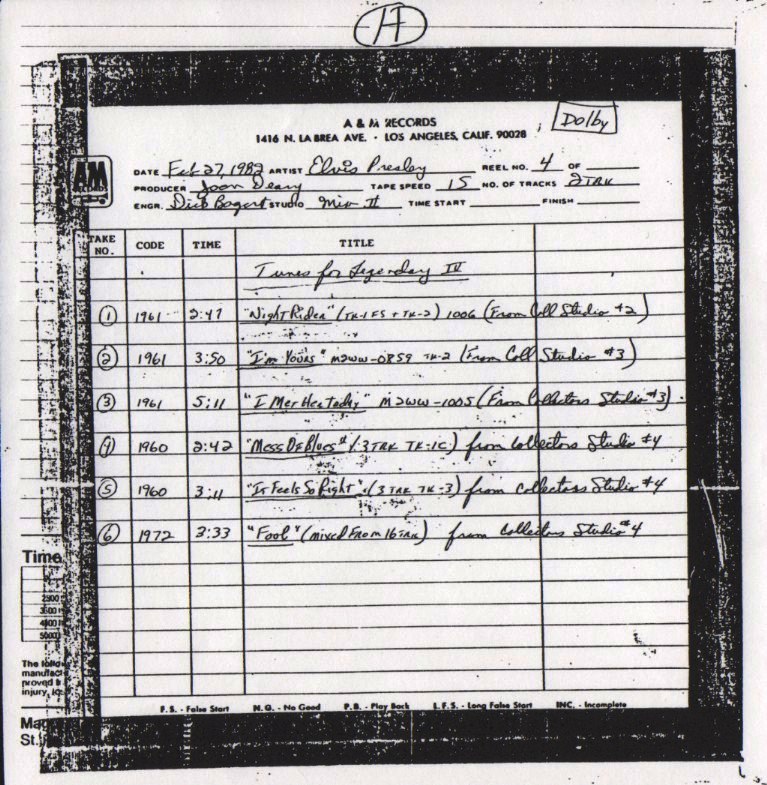 H
A & M RECORDS
1416 N. LA BREA AVE. · LOS ANGELES, CALIF. 90028
Dolby
AM RECORDS
DATE Feb 27, 1982 ARTIST Elvis Presley REEL NO. 4 OF
PRODUCER Joan Deary TAPE SPEED 15 NO. OF TRACKS 2TRK
ENGR. Dick Bogert STUDIO Mix II TIME START FINISH
TAKE NO. CODE TIME TITLE
Tunes for Legendary IV
1 1961 2:47 "Night Rider" (TK-1 FS + TK-2) 1006 (From Coll Studio #2)
2 1961 3:50 "I'm Yours" M2WW-0859 TK-2 (From Coll Studio #3)
3 1961 5:11 "I Met Her Today" M2WW-1005 (From Collectors Studio #3)
4 1960 2:42 "Mess Of Blues" (3TRK TK-1C) from Collectors Studio #4
5 1960 3:11 "It Feels So Right" (3TRK TK-3) from Collectors Studio #4
6 1972 2:33 "Fool" (mixed From 16TRK) from Collectors Studio #4
F.S. - False Start N.G. - No Good P.B. - Play Back L.F.S. - Long False Start INC. - Incomplete
Time
2500
3600
4800
5000
The
manufac
proved
injury,
Ma
St.